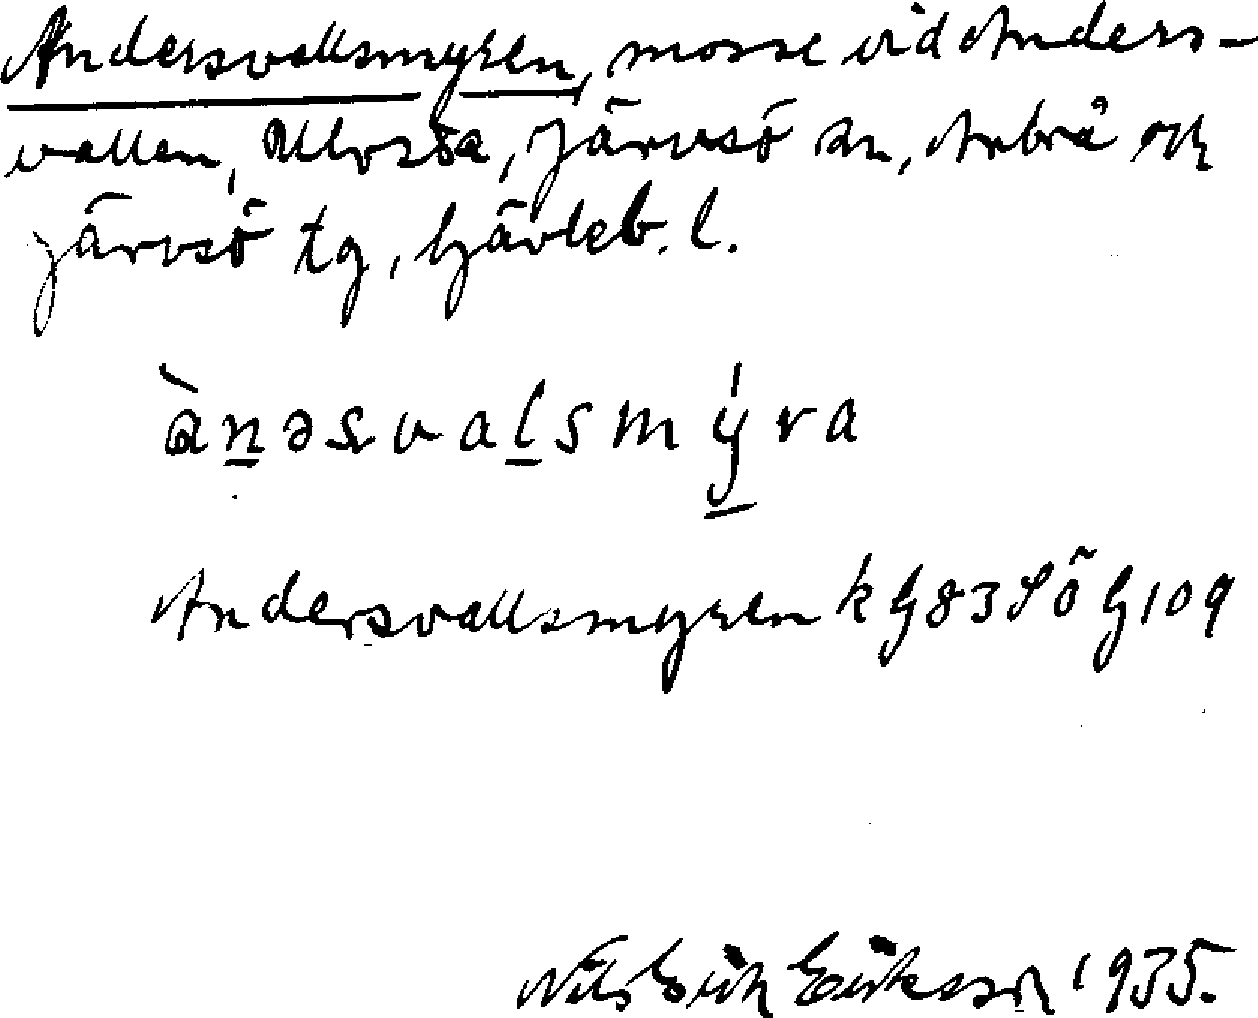 Andersvallsmyren, mosse vid Anders-
vallen, Ulvsta, Järvsö sn, Arbrå och
Järvsö tg, Gävleb. l.
ànəsvalsmýra
Andersvallsmyren k G83 SÖ G109
Nils Erik Eriksson 1935.